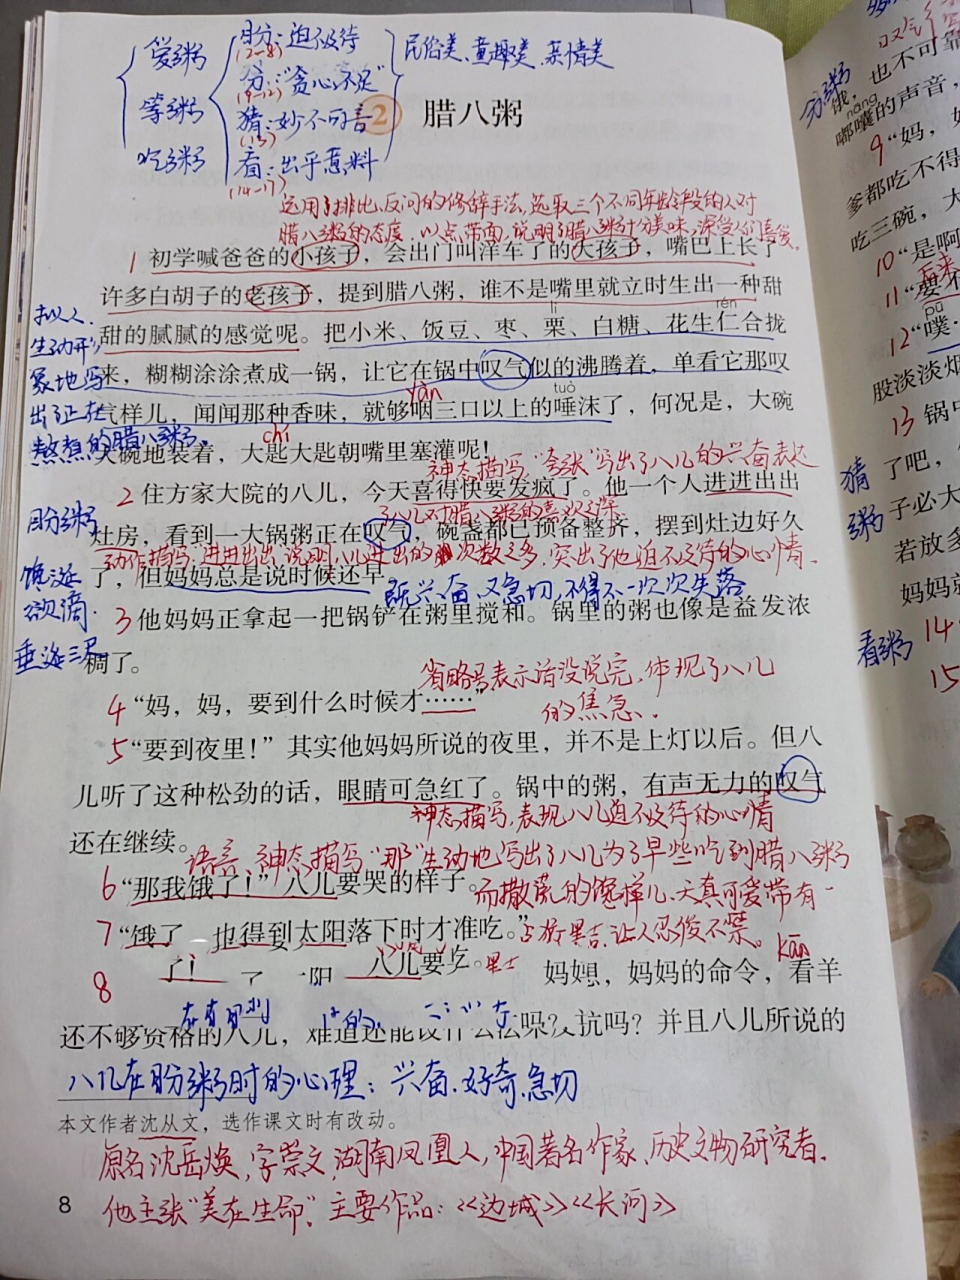 盼：迫不及待
(2-8)
等粥
分："贪心不足"
(9-12)
猜：妙不可言
(13)
吃粥
看：出乎意料
(14-17)
民俗美、童趣美、亲情美
2 腊八粥
运用了排比、反问的修辞手法,选取三个不同年龄段的人对
腊八粥的态度，以点带面,说明了腊八粥十分美味,深受人们喜爱。
1 初学喊爸爸的小孩子，会出门叫洋车了的大孩子，嘴巴上长了
许多白胡子的老孩子，提到腊八粥，谁不是嘴里就立时生出一种甜
lì rén
甜的腻腻的感觉呢。把小米、饭豆、枣、栗、白糖、花生仁合拢
来，糊糊涂涂煮成一锅，让它在锅中叹气似的沸腾着，单看它那叹
yàn tuò
气样儿，闻闻那种香味，就够咽三口以上的唾沫了，何况是，大碗
chí
大碗地装着，大匙大匙朝嘴里塞灌呢！
拟人、
生动形
象地写
出了正在
熬煮的腊八粥。
神态描写，"夸张"写出了八儿的兴奋表达
了八儿对腊八粥的喜欢之深
2 住方家大院的八儿，今天喜得快要发疯了。他一个人进进出出
灶房，看到一大锅粥正在叹气，碗盏都已预备整齐，摆到灶边好久
动作描写：进进出出,说明八儿进出的次数之多,突出了他迫不及待的心情.
了，但妈妈总是说时候还早。
既兴奋,又急切,不得不一次次失落
盼粥
馋涎
欲滴.
垂涎三尺
3 他妈妈正拿起一把锅铲在粥里搅和。锅里的粥也像是益发浓
稠了。
省略号表示话没说完,体现了八儿
的焦急.
4 “妈，妈，要到什么时候才……”
5 “要到夜里！”其实他妈妈所说的夜里，并不是上灯以后。但八
儿听了这种松劲的话，眼睛可急红了。锅中的粥，有声无力的叹气
还在继续。
神态描写,表现八儿迫不及待的心情
语言、神态描写,"那"生动地写出了八儿为了早些吃到腊八粥
6 “那我饿了！”八儿要哭的样子。
而撒谎的馋样儿,天真可爱带有一
7 “饿了，也得到太阳落下时才准吃。”
点狡黠,让人忍俊不禁。
kān
8
妈妈，妈妈的命令，看羊
还不够资格的八儿，难道还能设什么法
反抗吗？并且八儿所说的
八儿在盼粥时的心理：兴奋、好奇、急切
本文作者沈从文，选作课文时有改动。
原名沈岳焕,字崇文,湖南凤凰人,中国著名作家、历史文物研究者.
他主张"美在生命",主要作品：《边城》《长河》
8
分粥
也不可靠
náng
嘟囔的声音，
9 “妈，妈
爹都吃不得
吃三碗，大
10 “是啊
11 “要不
pū
12 “噗
股淡淡烟
13 锅中
猜
粥
了吧，
子必大
若放多
妈妈就
看粥
14
15